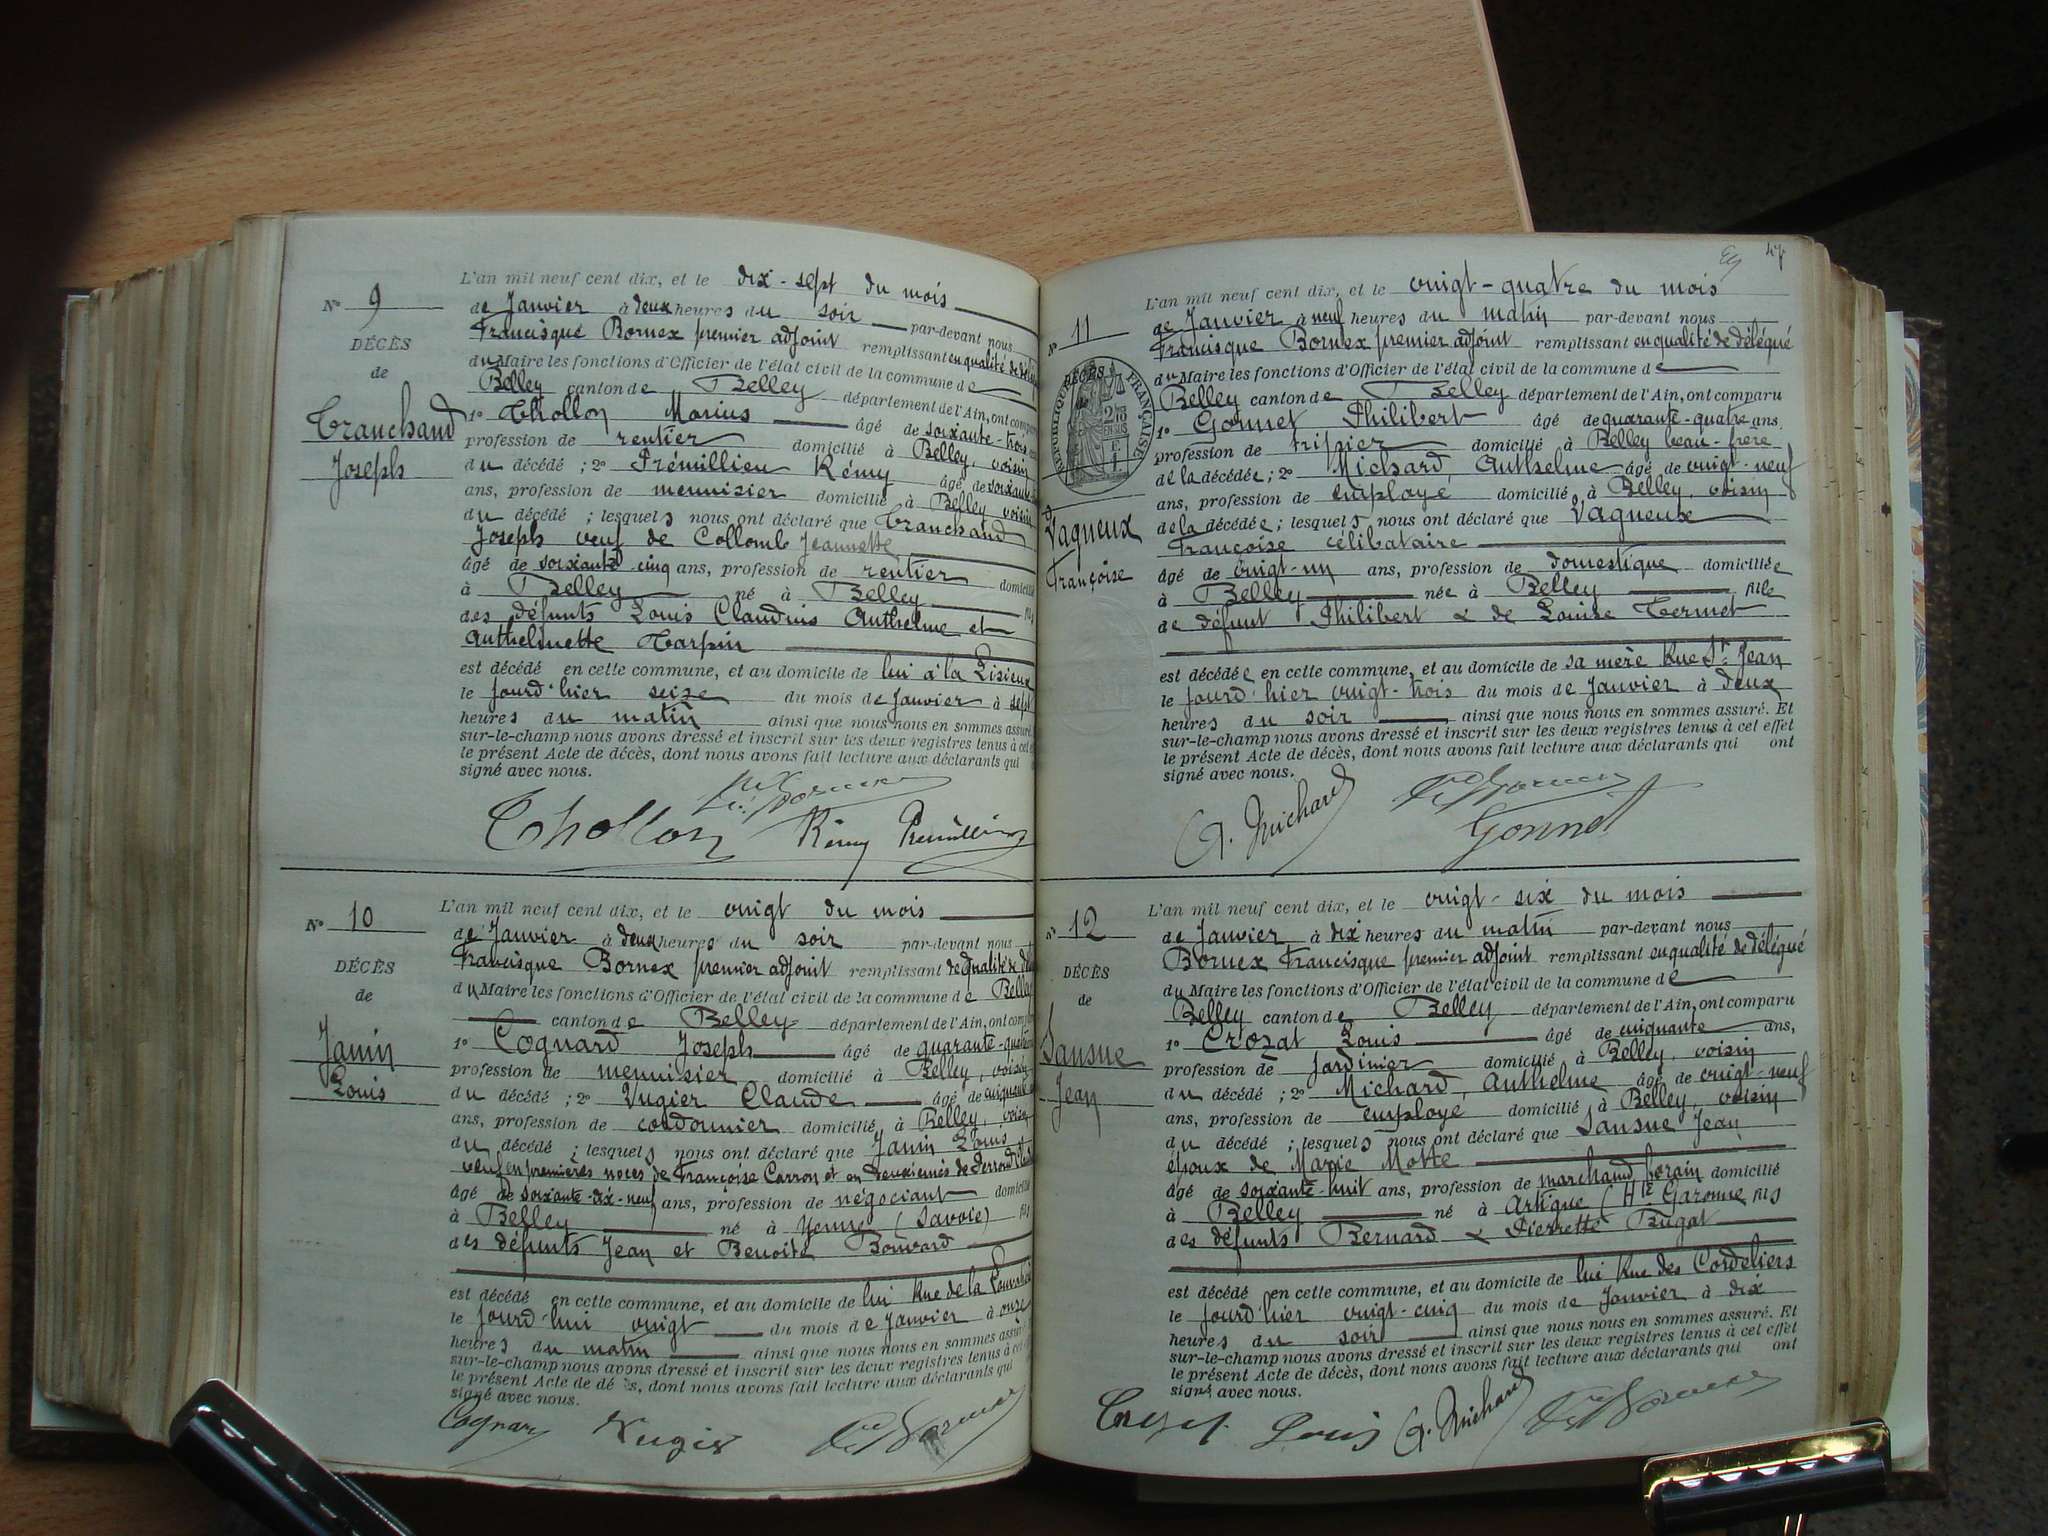 N° 9
DÉCÈS
de
Tranchand
Joseph
L'an mil neuf cent dix, et le dix-sept du mois
de Janvier à deux heures du soir par-devant nous
Francisque Bornex premier adjoint remplissant en qualité de
du Maire les fonctions d'Officier de l'état civil de la commune de
Belley canton de Belley département de l'Ain, ont comparu
1° Thollon Marius âgé de soixante-trois
profession de rentier domicilié à Belley, voisin
du décédé ; 2° Prémillieu Rémy âgé de soixante
ans, profession de menuisier domicilié à Belley voisin
du décédé ; lesquels nous ont déclaré que Tranchand
Joseph veuf de Collomb Jeannette
âgé de soixante cinq ans, profession de rentier domicilié
à Belley né à Belley fils
des défunts Louis Claudius Anthelme et
Anthelmette Tarpin
est décédé en cette commune, et au domicile de lui à la
le jourd'hier seize du mois de Janvier à sept
heures du matin ainsi que nous nous en sommes assuré.
sur-le-champ nous avons dressé et inscrit sur les deux registres tenus à cet
le présent Acte de décès, dont nous avons fait lecture aux déclarants qui
signé avec nous.
Thollon Rémy Prémillieu
N° 10
DÉCÈS
de
Janin
Louis
L'an mil neuf cent dix, et le vingt du mois
de Janvier à deux heures du soir par-devant nous
Francisque Bornex premier adjoint remplissant de qualité de
du Maire les fonctions d'Officier de l'état civil de la commune de Belley
canton de Belley département de l'Ain, ont comparu
1° Cognard Joseph âgé de quarante-quatre
profession de menuisier domicilié à Belley, voisin
du décédé ; 2° Vugier Claude âgé de
ans, profession de cordonnier domicilié à Belley, voisin
du décédé ; lesquels nous ont déclaré que Janin Louis
veuf en premières noces de Françoise Carron et en deuxièmes de
âgé de soixante-dix-neuf ans, profession de négociant domicilié
à Belley né à Yenne (Savoie) fils
des défunts Jean et Benoîte Bouvard
est décédé en cette commune, et au domicile de lui Rue de la
le jourd'hui vingt du mois de Janvier à onze
heures du matin ainsi que nous nous en sommes assuré.
sur-le-champ nous avons dressé et inscrit sur les deux registres tenus à cet
le présent Acte de décès, dont nous avons fait lecture aux déclarants qui
signé avec nous.
Cognard Vugier
47
N° 11
DÉCÈS
RÉPUBLIQUE FRANÇAISE
Vagneux
Françoise
L'an mil neuf cent dix, et le vingt-quatre du mois
de Janvier à neuf heures du matin par-devant nous
Francisque Bornex premier adjoint remplissant en qualité de délégué
du Maire les fonctions d'Officier de l'état civil de la commune de
Belley canton de Belley département de l'Ain, ont comparu
1° Gonnet Philibert âgé de quarante-quatre ans,
profession de tripier domicilié à Belley beau-frère
de la décédée ; 2° Michard, Anthelme âgé de vingt-neuf
ans, profession de employé domicilié à Belley, voisin
de la décédée ; lesquels nous ont déclaré que Vagneux
Françoise célibataire
âgé de vingt-un ans, profession de domestique domiciliée
à Belley née à Belley fille
de défunt Philibert & de Louise Termet
est décédée en cette commune, et au domicile de sa mère Rue St Jean
le jourd'hier vingt-trois du mois de Janvier à deux
heures du soir ainsi que nous nous en sommes assuré. Et
sur-le-champ nous avons dressé et inscrit sur les deux registres tenus à cet effet
le présent Acte de décès, dont nous avons fait lecture aux déclarants qui ont
signé avec nous.
A. Michard Gonnet
N° 12
DÉCÈS
de
Sansue
Jean
L'an mil neuf cent dix, et le vingt-six du mois
de Janvier à dix heures du matin par-devant nous
Bornex Francisque premier adjoint remplissant en qualité de délégué
du Maire les fonctions d'Officier de l'état civil de la commune de
Belley canton de Belley département de l'Ain, ont comparu
1° Crozat Louis âgé de cinquante ans,
profession de Jardinier domicilié à Belley, voisin
du décédé ; 2° Michard, Anthelme âgé de vingt-neuf
ans, profession de employé domicilié à Belley, voisin
du décédé ; lesquels nous ont déclaré que Sansue Jean
époux de Marie Motte
âgé de soixante-huit ans, profession de marchand forain domicilié
à Belley né à Artigue (Hte Garonne fils
des défunts Bernard & Pierrette Bugat
est décédé en cette commune, et au domicile de lui Rue des Cordeliers
le jourd'hier vingt-cinq du mois de Janvier à dix
heures du soir ainsi que nous nous en sommes assuré. Et
sur-le-champ nous avons dressé et inscrit sur les deux registres tenus à cet effet
le présent Acte de décès, dont nous avons fait lecture aux déclarants qui ont
signé avec nous.
Crozat Louis A. Michard